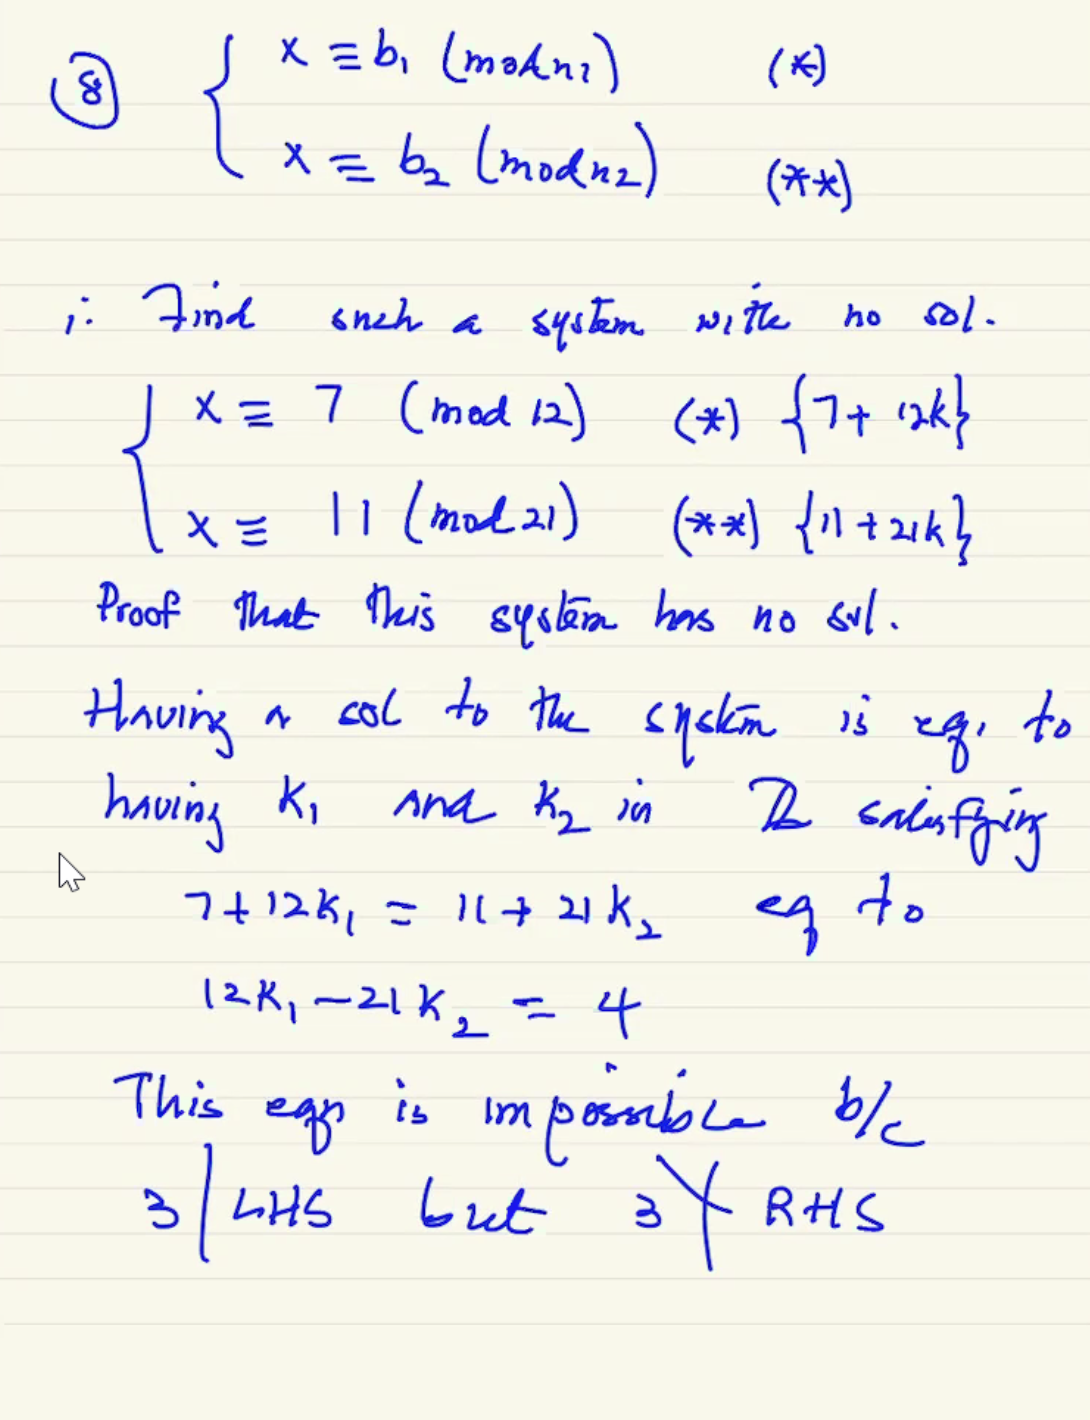 ⑧ { x ≡ b₁ (mod n₁) (*)
x ≡ b₂ (mod n₂) (**)
i. Find such a system with no sol.
{ x ≡ 7 (mod 12) (*) {7 + 12k}
x ≡ 11 (mod 21) (**) {11 + 21k}
Proof that this system has no sol.
Having a sol to the system is eq. to
having k₁ and k₂ in ℤ satisfying
7 + 12k₁ = 11 + 21k₂ eq to
12k₁ - 21k₂ = 4
This eqn is impossible b/c
3 | LHS but 3 ∤ RHS